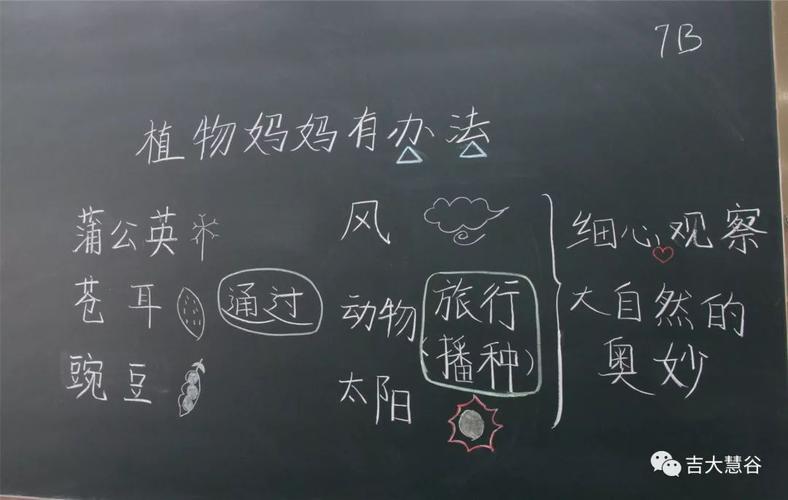 7B
植物妈妈有办法
蒲公英
苍耳
豌豆
通过
风
动物
太阳
旅行
(播种)
细心观察
大自然的
奥妙
吉大慧谷